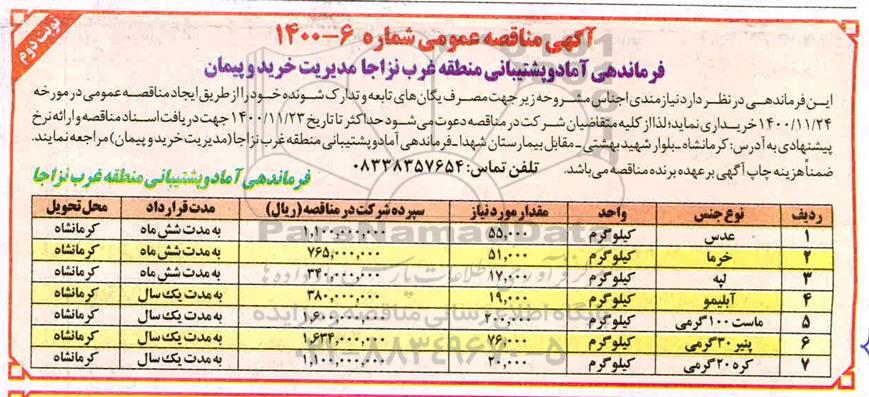 نوبت دوم
آگهی مناقصه عمومی شماره ۶-۱۴۰۰
فرماندهی آماد و پشتیبانی منطقه غرب نزاجا مدیریت خرید و پیمان
این فرماندهی در نظر دارد نیازمندی اجناس مشروحه زیر جهت مصرف یگان های تابعه و تدارک شونده خود را از طریق ایجاد مناقصه عمومی در مورخه
۱۴۰۰/۱۱/۲۴ خریداری نماید؛ لذا از کلیه متقاضیان شرکت در مناقصه دعوت می شود حداکثر تا تاریخ ۱۴۰۰/۱۱/۲۳ جهت دریافت اسناد مناقصه و ارائه نرخ
پیشنهادی به آدرس: کرمانشاه_بلوار شهید بهشتی_ مقابل بیمارستان شهدا_فرماندهی آماد و پشتیبانی منطقه غرب نزاجا (مدیریت خرید و پیمان) مراجعه نمایند.
ضمناً هزینه چاپ آگهی بر عهده برنده مناقصه می باشد. تلفن تماس: ۰۸۳۳۸۳۵۷۶۵۴
فرماندهی آماد و پشتیبانی منطقه غرب نزاجا
ردیف نوع جنس واحد مقدار مورد نیاز سپرده شرکت در مناقصه (ریال) مدت قرارداد محل تحویل
۱ عدس کیلوگرم ۵۵,۰۰۰ ۱,۱۰۰,۰۰۰,۰۰۰ به مدت شش ماه کرمانشاه
۲ خرما کیلوگرم ۵۱,۰۰۰ ۷۶۵,۰۰۰,۰۰۰ به مدت شش ماه کرمانشاه
۳ لپه کیلوگرم ۱۷,۰۰۰ ۳۴۰,۰۰۰,۰۰۰ به مدت شش ماه کرمانشاه
۴ آبلیمو کیلوگرم ۱۹,۰۰۰ ۳۸۰,۰۰۰,۰۰۰ به مدت یک سال کرمانشاه
۵ ماست ۱۰۰ گرمی کیلوگرم ۲۰۰,۰۰۰ ۱,۶۰۰,۰۰۰,۰۰۰ به مدت یک سال کرمانشاه
۶ پنیر ۳۰ گرمی کیلوگرم ۷۶,۰۰۰ ۱,۶۳۴,۰۰۰,۰۰۰ به مدت یک سال کرمانشاه
۷ کره ۲۰ گرمی کیلوگرم ۲۰,۰۰۰ ۱,۱۰۰,۰۰۰,۰۰۰ به مدت یک سال کرمانشاه
ParsNamadData
پایگاه اطلاع رسانی مناقصه و مزایده
۰۲۱-۸۸۳۴۹۶۷۰-۵